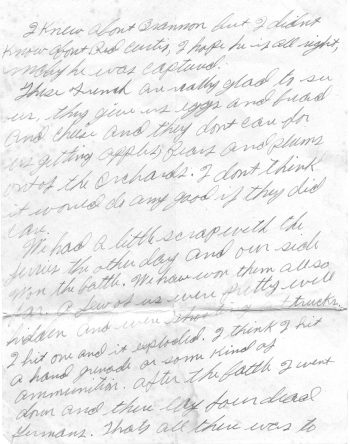 I knew about Brannon but I didnt
know about Red Curtis, I hope he is all right,
maby he was captured.
These French are really glad to see
us, they give us eggs and bread
and chese and they dont care for
us getting apples, pears and plums
out of the orchards. I dont think
it would do any good if they did
care.
We had a little scrap with the
jerries the other day and our side
won the battle. We have won them all so
far. A few of us were pretty well
hidden and were trucks.
I hit one and it exploded. I think I hit
a hand grenade or some kind of
ammunition. After the battle I went
down and there lay four dead
Germans. Thats all there was to